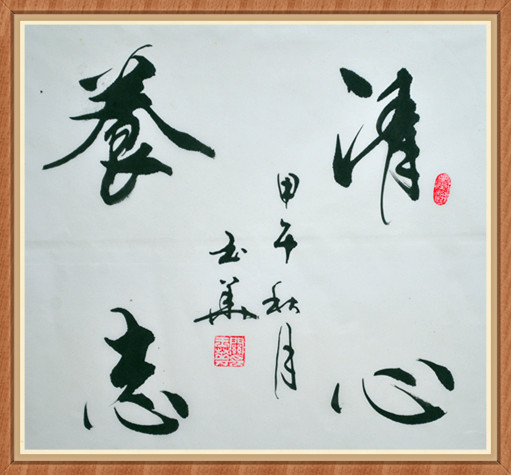 清心
養志
甲午秋月
玉華